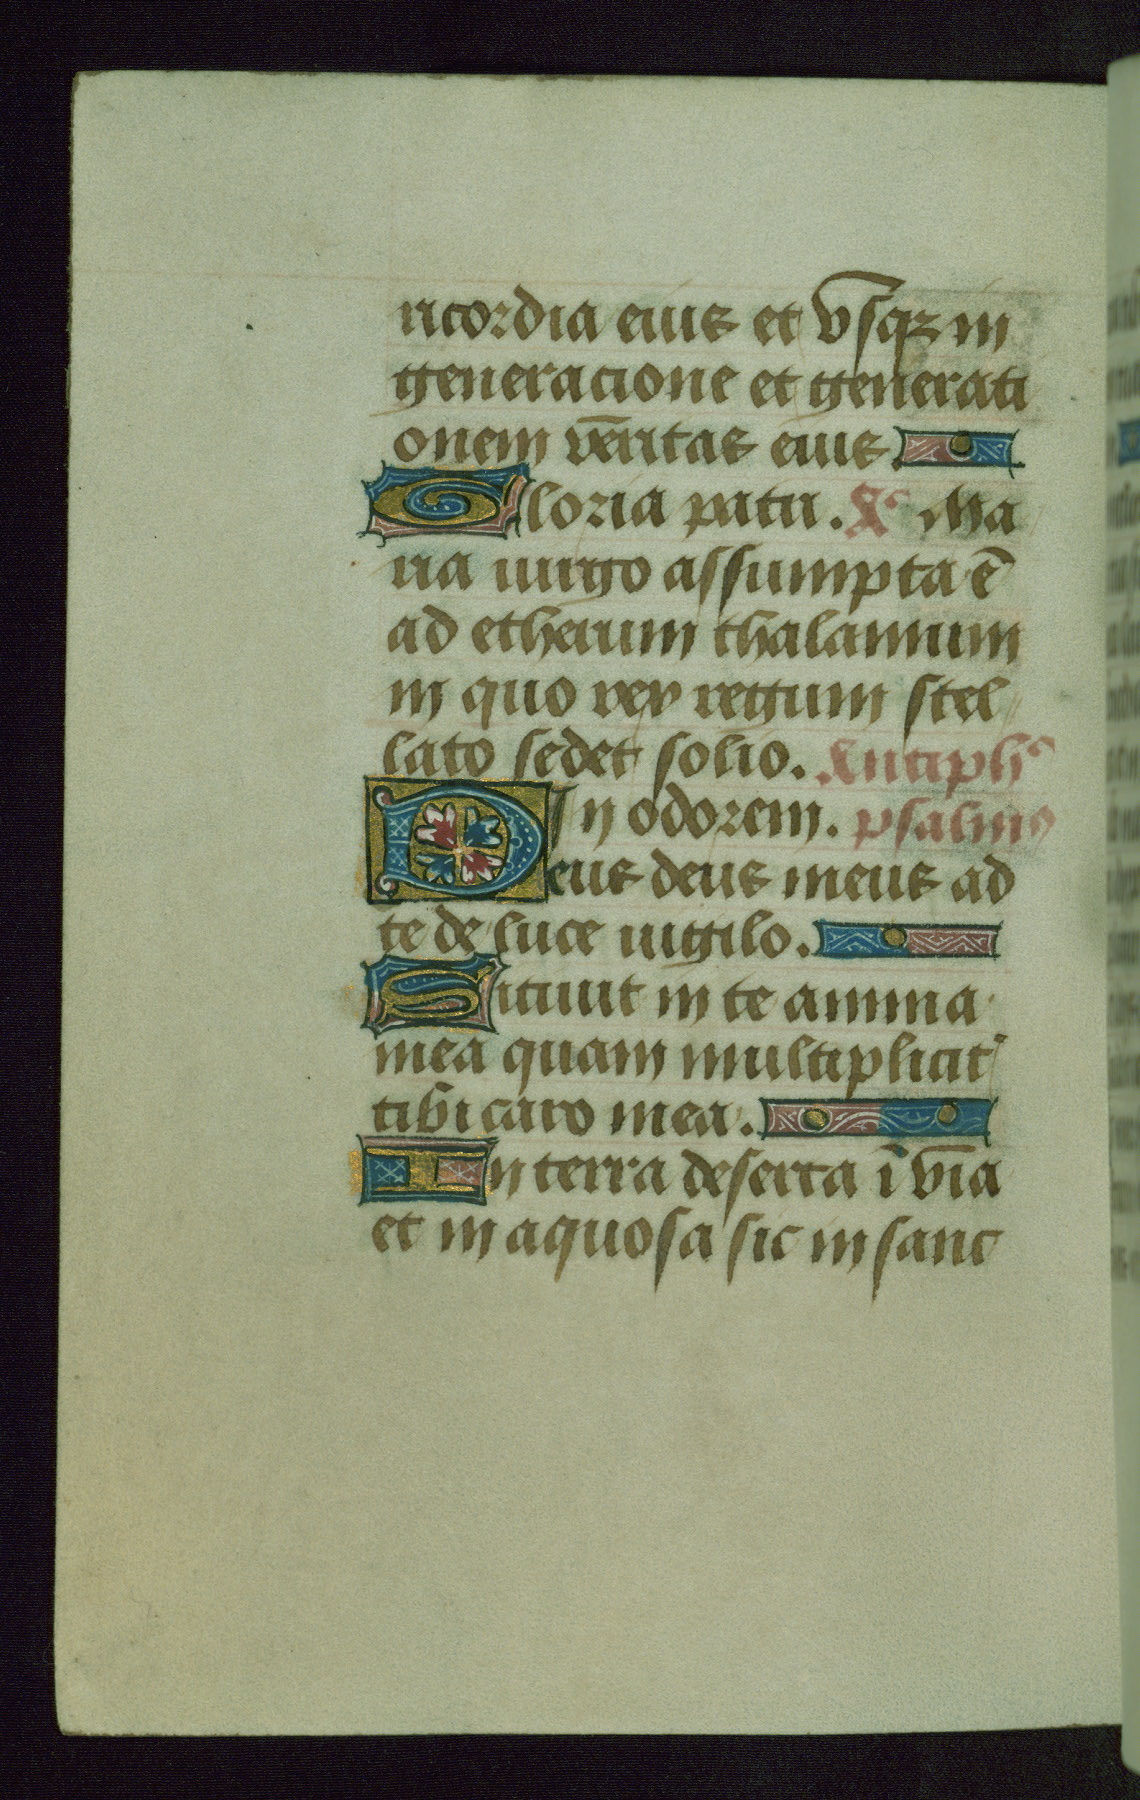 ricordia eius et vsqz in
generacione et generati
onem veritas eius.
Gloria patri. Ac Ma
ria uirgo assumpta ē
ad etherium thalamum
in quo rex regum stel
lato sedet solio. Antiph
In odorem. psalmus
Deus deus meus ad
te de luce uigilo.
Sitiuit in te anima
mea quam multiplicit
tibi caro mea.
In terra deserta ī via
et in aquosa sic in sanc